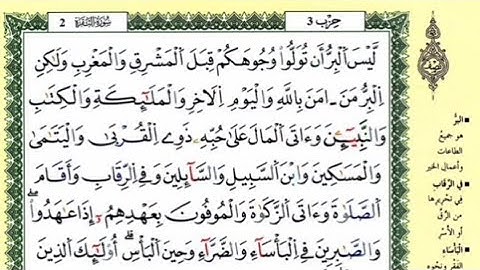 حِزْب 3
سُورَةُ البَقَرَة 2
لَّيْسَ اَلْبِرُّ أَن تُوَلُّواْ وُجُوهَكُمْ قِبَلَ اَلْمَشْرِقِ وَالْمَغْرِبِ وَلَٰكِنِ
اِلْبِرُّ مَنَ ـ امَنَ بِاللَّهِ وَالْيَوْمِ اِلَاخِرِ وَالْمَلَٰٓئِكَةِ وَالْكِتَٰبِ
وَالنَّبِيٓـِٕينَ وَءَاتَى اَلْمَالَ عَلَىٰ حُبِّهِۦ ذَوِے اِلْقُرْبَىٰ وَالْيَتَٰمَىٰ
وَالْمَسَٰكِينَ وَابْنَ اَلسَّبِيلِ وَالسَّآئِلِينَ وَفِے اِلرِّقَابِ وَأَقَامَ
اَلصَّلَوٰةَ وَءَاتَى اَلزَّكَوٰةَ وَالْمُوفُونَ بِعَهْدِهِمُۥٓ إِذَا عَٰهَدُواْۖ
وَالصَّٰبِرِينَ فِے اِلْبَأْسَآءِ وَالضَّرَّآءِ وَحِينَ اَلْبَأْسِۖ أُوْلَٰٓئِكَ اَلذِينَ
نصف
■ البرُّ
هو جميعُ
الطاعات
وأعمال الخير
■ في الرِّقاب
في تحريرها
من الرِّقِّ
أو الأسْرِ
■ البَأسَاءِ
الفقر ونحوه